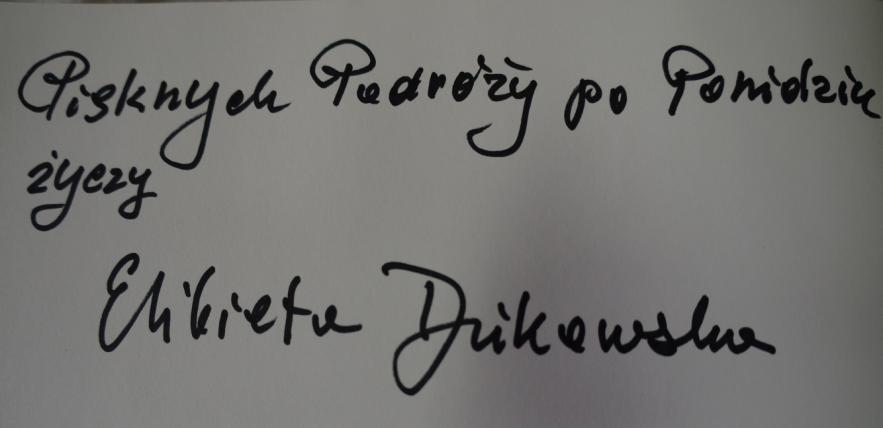 Pięknych Podróży po Ponidziu
życzy
Elżbieta Dzikowska